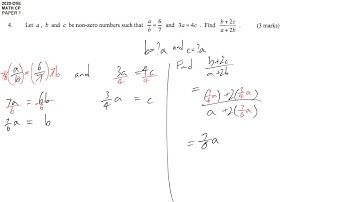 2020-DSE
MATH CP
PAPER 1
4. Let a, b and c be non-zero numbers such that a/b = 6/7 and 3a = 4c. Find (b+2c)/(a+2b). (3 marks)
b=?a and c=?a
(a/b) = (6/7) 7b and 3a/4 = 4c/4
7a/6 = 6b/6 3/4 a = c
7/6 a = b
Find (b+2c)/(a+2b)
= ((7/6 a)+2(3/4 a))/(a+2(7/6 a))